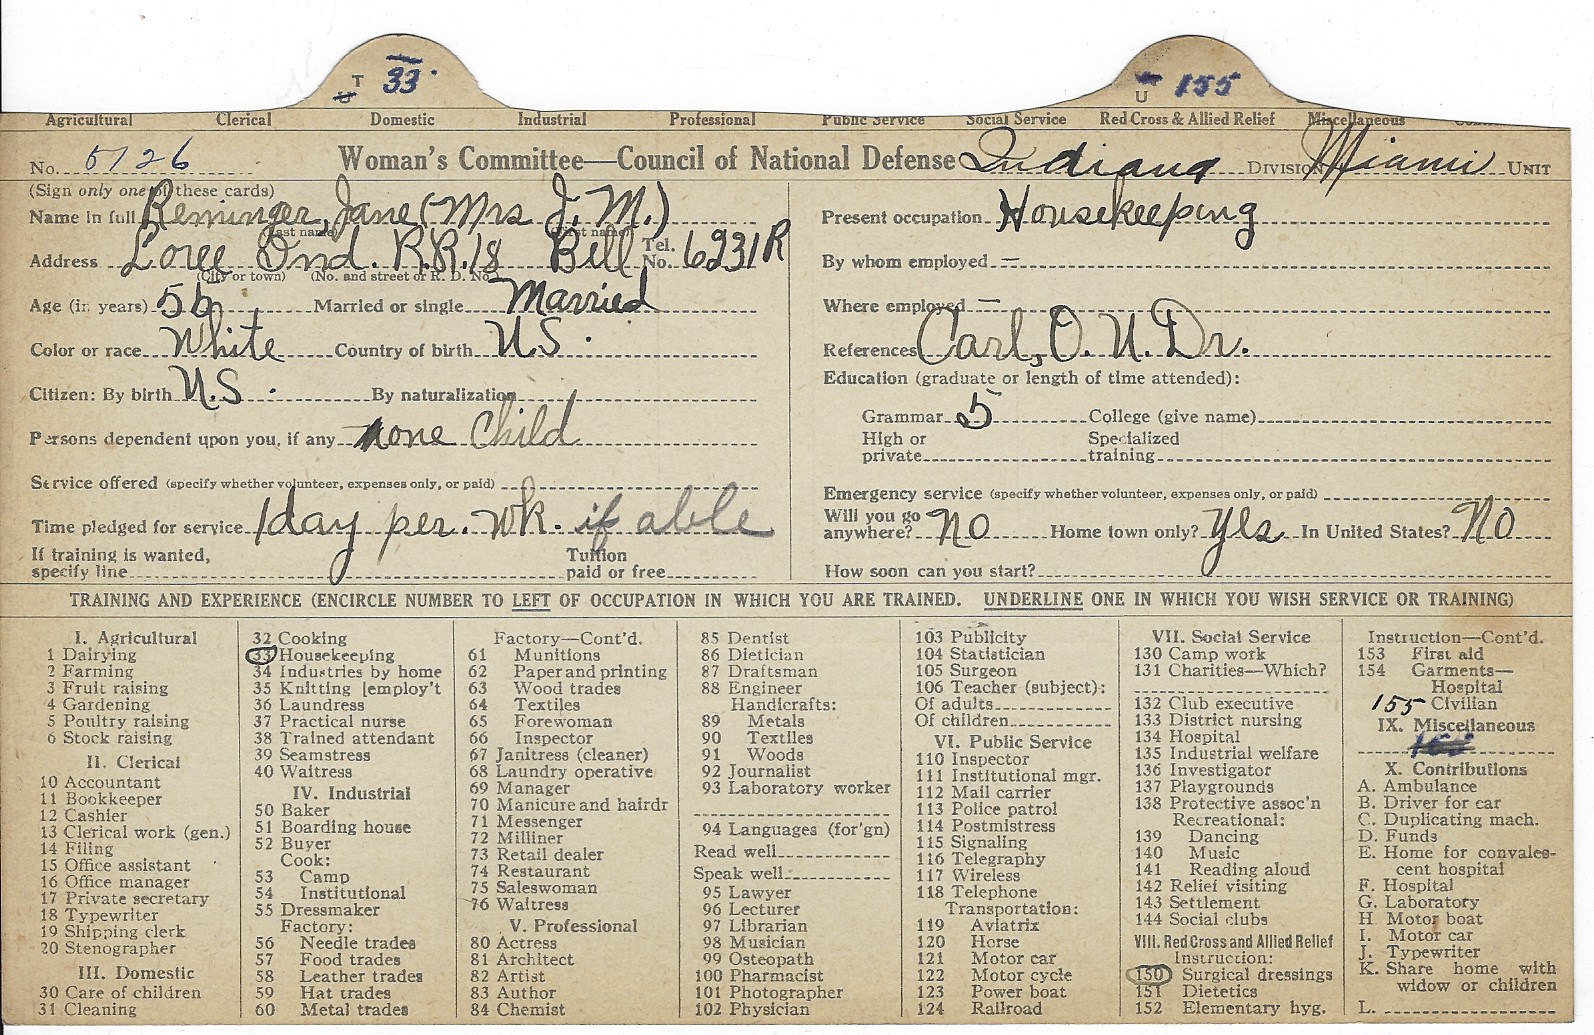 T 33.
U 155
Agricultural Clerical Domestic Industrial Professional Public Service Social Service Red Cross & Allied Relief Miscellaneous
No. 5126 Woman's Committee—Council of National Defense Indiana DIVISION Miami UNIT
(Sign only one of these cards)
Name in full Reninger, Jane (Mrs J. M.)
(Last name) (First name)
Address Loree Ind. R.R. 18 Bell Tel. No. 6231R
(City or town) (No. and street or R. D. No.)
Age (in years) 56 Married or single Married
Color or race White Country of birth U.S.
Citizen: By birth U.S. By naturalization
Persons dependent upon you, if any none Child
Service offered (specify whether volunteer, expenses only, or paid)
Time pledged for service 1 day per. wk. if able
If training is wanted, specify line Tuition paid or free
Present occupation Housekeeping
By whom employed —
Where employed —
References Carl, O. U. Dr.
Education (graduate or length of time attended):
Grammar 5 College (give name)
High or private Specialized training
Emergency service (specify whether volunteer, expenses only, or paid)
Will you go anywhere? No Home town only? Yes In United States? No
How soon can you start?
TRAINING AND EXPERIENCE (ENCIRCLE NUMBER TO LEFT OF OCCUPATION IN WHICH YOU ARE TRAINED. UNDERLINE ONE IN WHICH YOU WISH SERVICE OR TRAINING)
I. Agricultural
1 Dairying
2 Farming
3 Fruit raising
4 Gardening
5 Poultry raising
6 Stock raising
II. Clerical
10 Accountant
11 Bookkeeper
12 Cashier
13 Clerical work (gen.)
14 Filing
15 Office assistant
16 Office manager
17 Private secretary
18 Typewriter
19 Shipping clerk
20 Stenographer
III. Domestic
30 Care of children
31 Cleaning
32 Cooking
33 Housekeeping
34 Industries by home
35 Knitting [employ't
36 Laundress
37 Practical nurse
38 Trained attendant
39 Seamstress
40 Waitress
IV. Industrial
50 Baker
51 Boarding house
52 Buyer
Cook:
53 Camp
54 Institutional
55 Dressmaker
Factory:
56 Needle trades
57 Food trades
58 Leather trades
59 Hat trades
60 Metal trades
Factory—Cont'd.
61 Munitions
62 Paper and printing
63 Wood trades
64 Textiles
65 Forewoman
66 Inspector
67 Janitress (cleaner)
68 Laundry operative
69 Manager
70 Manicure and hairdr
71 Messenger
72 Milliner
73 Retail dealer
74 Restaurant
75 Saleswoman
76 Waitress
V. Professional
80 Actress
81 Architect
82 Artist
83 Author
84 Chemist
85 Dentist
86 Dietician
87 Draftsman
88 Engineer
Handicrafts:
89 Metals
90 Textiles
91 Woods
92 Journalist
93 Laboratory worker
94 Languages (for'gn)
Read well
Speak well
95 Lawyer
96 Lecturer
97 Librarian
98 Musician
99 Osteopath
100 Pharmacist
101 Photographer
102 Physician
103 Publicity
104 Statistician
105 Surgeon
106 Teacher (subject):
Of adults
Of children
VI. Public Service
110 Inspector
111 Institutional mgr.
112 Mail carrier
113 Police patrol
114 Postmistress
115 Signaling
116 Telegraphy
117 Wireless
118 Telephone
Transportation:
119 Aviatrix
120 Horse
121 Motor car
122 Motor cycle
123 Power boat
124 Railroad
VII. Social Service
130 Camp work
131 Charities—Which?
132 Club executive
133 District nursing
134 Hospital
135 Industrial welfare
136 Investigator
137 Playgrounds
138 Protective assoc'n
Recreational:
139 Dancing
140 Music
141 Reading aloud
142 Relief visiting
143 Settlement
144 Social clubs
VIII. Red Cross and Allied Relief
Instruction:
150 Surgical dressings
151 Dietetics
152 Elementary hyg.
Instruction—Cont'd.
153 First aid
154 Garments—
Hospital
155 Civilian
IX. Miscellaneous
X. Contributions
A. Ambulance
B. Driver for car
C. Duplicating mach.
D. Funds
E. Home for convales-
cent hospital
F. Hospital
G. Laboratory
H. Motor boat
I. Motor car
J. Typewriter
K. Share home with
widow or children
L.